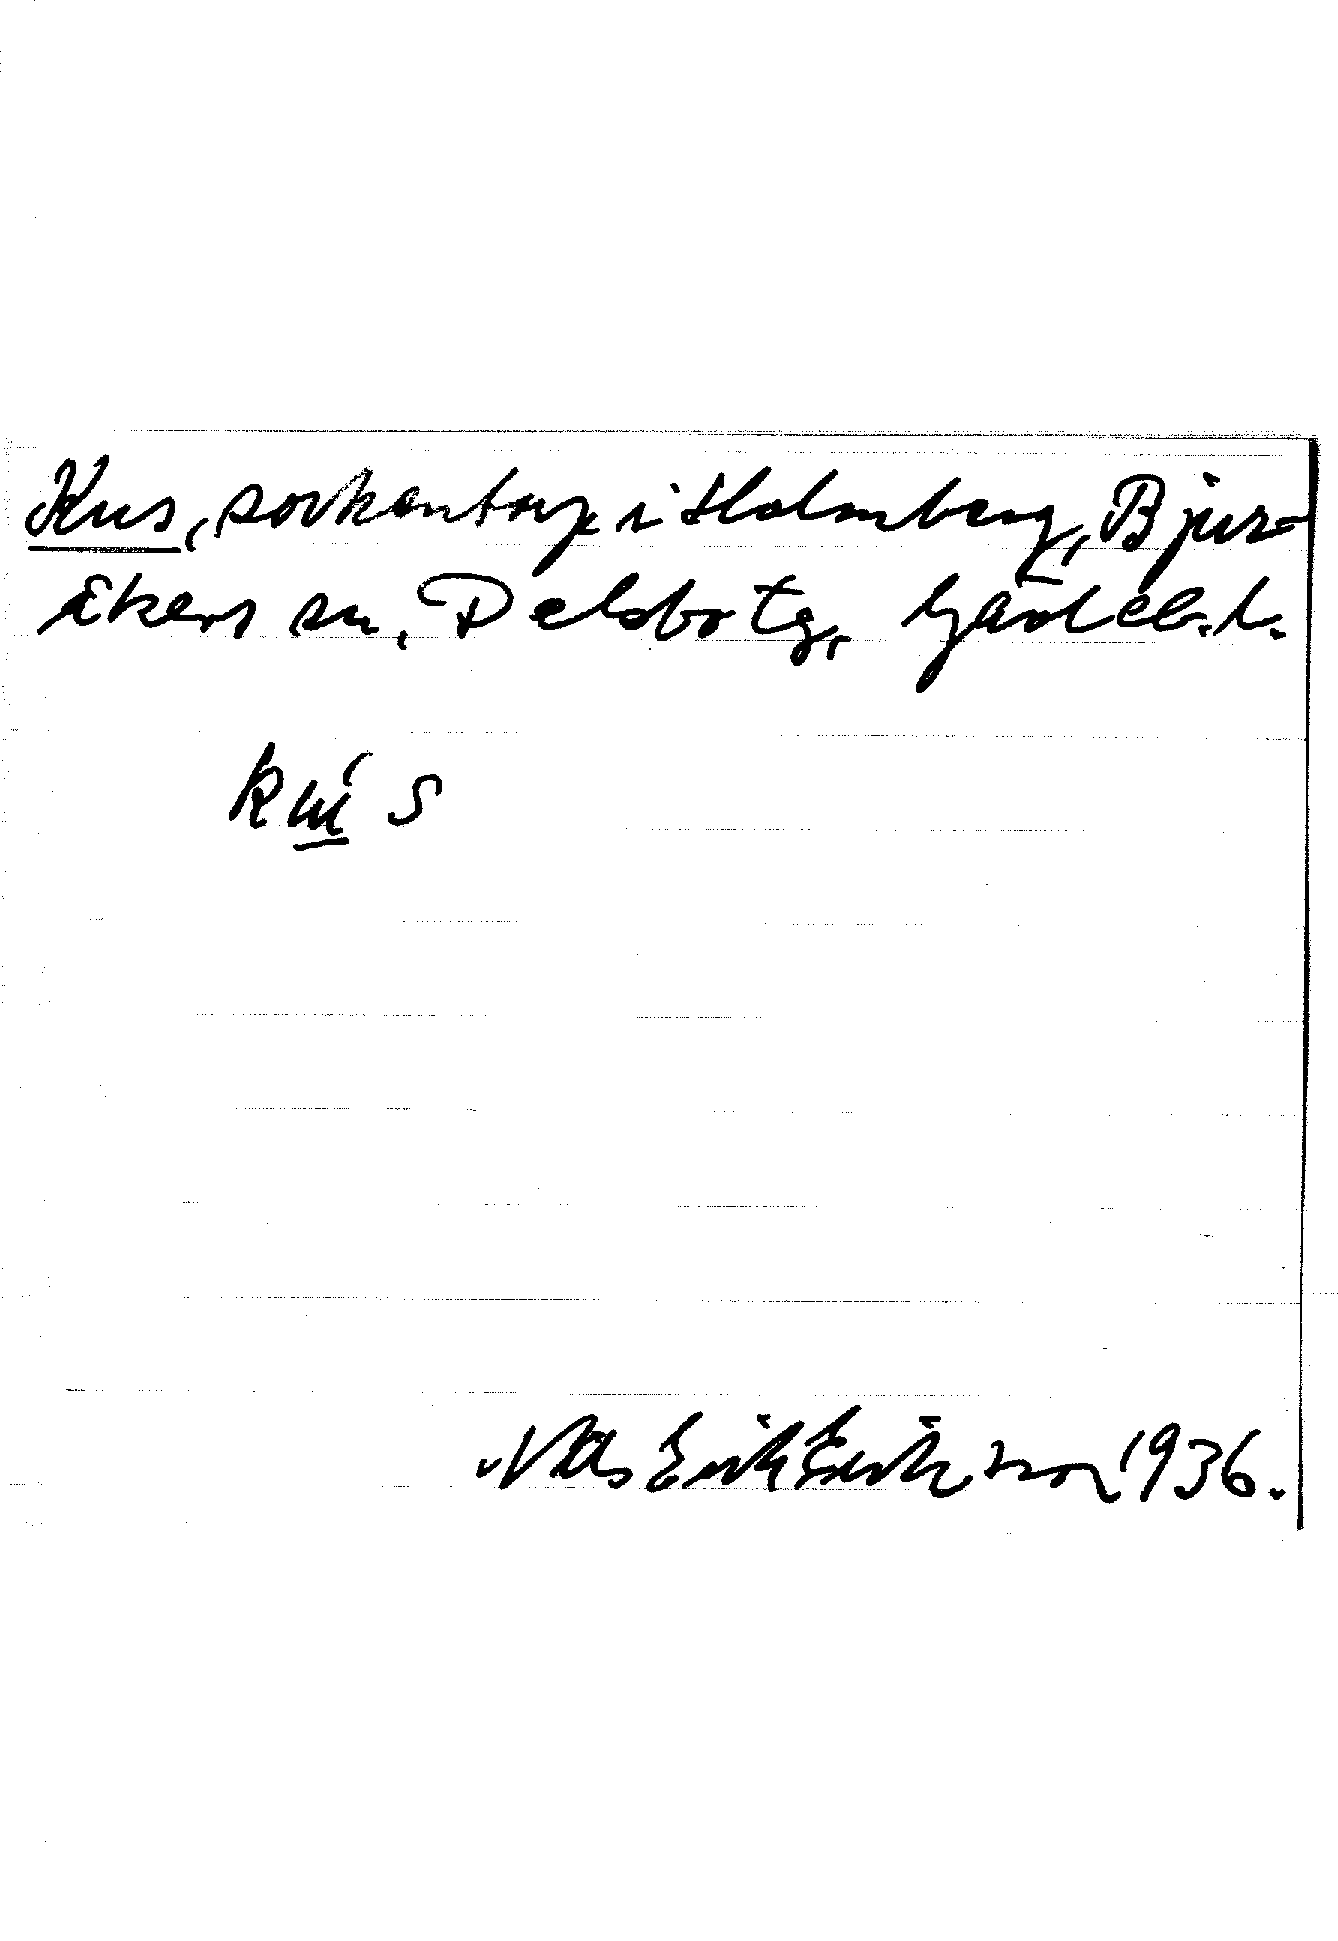 Kus, sockentorp i Holmberg, Bjur-
åkers sn, Delsbo tg, Gävleb. l.
Nils Erik Eriksson 1936.